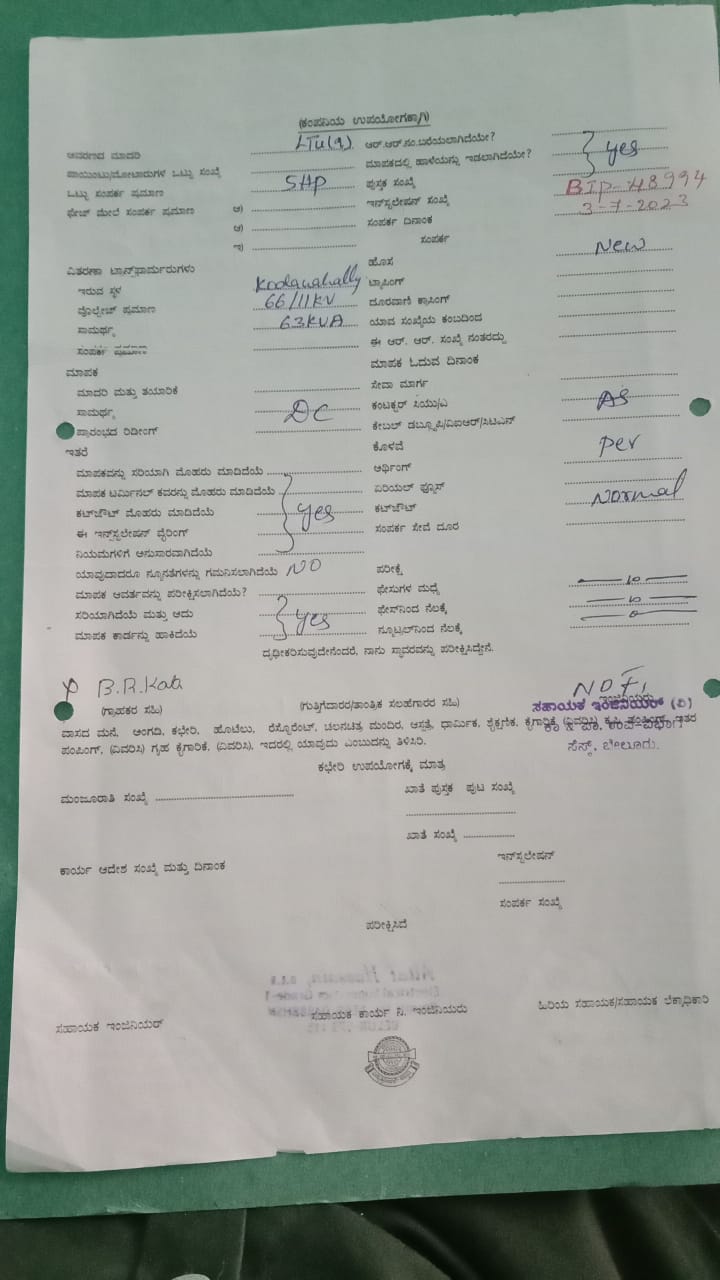 (ಕಂಪನಿಯ ಉಪಯೋಗಕ್ಕಾಗಿ)
ಆವರಣದ ಮಾದರಿ LTu(a) ಆರ್.ಆರ್.ನಂ.ಬರೆಯಲಾಗಿದೆಯೇ?
ಪಾಯಿಂಟು/ಮೋಟಾರುಗಳ ಒಟ್ಟು ಸಂಖ್ಯೆ ಮಾಪಕದಲ್ಲಿ ಹಾಳೆಯನ್ನು ಇಡಲಾಗಿದೆಯೇ? yes
ಒಟ್ಟು ಸಂಪರ್ಕ ಪ್ರಮಾಣ 5Hp ಪುಸ್ತಕ ಸಂಖ್ಯೆ
ಫೇಜ್ ಮೇಲೆ ಸಂಪರ್ಕ ಪ್ರಮಾಣ ಅ) ಇನ್‌ಸ್ಟಲೇಷನ್ ಸಂಖ್ಯೆ BIP-48994
ಆ) ಸಂಪರ್ಕ ದಿನಾಂಕ 3-7-2023
ಇ) ಸಂಪರ್ಕ
ವಿತರಣಾ ಟ್ರಾನ್ಸ್‌ಫಾರ್ಮರುಗಳು ಹೊಸ New
ಇರುವ ಸ್ಥಳ Kodanahally ಟ್ಯಾಪಿಂಗ್
ವೊಲ್ಟೇಜ್ ಪ್ರಮಾಣ 66/11KV ದೂರವಾಣಿ ಕ್ರಾಸಿಂಗ್
ಸಾಮರ್ಥ್ಯ 63KVA ಯಾವ ಸಂಖ್ಯೆಯ ಕಂಬದಿಂದ
ಸಂಪರ್ಕ ಪ್ರಮಾಣ ಈ ಆರ್. ಆರ್. ಸಂಖ್ಯೆ ನಂತರದ್ದು
ಮಾಪಕ ಮಾಪಕ ಓದುವ ದಿನಾಂಕ
ಮಾದರಿ ಮತ್ತು ತಯಾರಿಕೆ ಸೇವಾ ಮಾರ್ಗ
ಸಾಮರ್ಥ್ಯ DC ಕಂಟಕ್ಟರ್ ಸಿಯು/ಎ As
ಪ್ರಾರಂಭದ ರಿಡೀಂಗ್ ಕೇಬಲ್ ಡಬ್ಲ್ಯೂಪಿ/ವಿಐಆರ್/ಸಿಟಿಎನ್
ಇತರೆ ಕೊಳವೆ per
ಮಾಪಕವನ್ನು ಸರಿಯಾಗಿ ಮೊಹರು ಮಾಡಿದೆಯೆ ಅರ್ಥಿಂಗ್
ಮಾಪಕ ಟರ್ಮಿನಲ್ ಕವರನ್ನು ಮೊಹರು ಮಾಡಿದೆಯೆ ಏರಿಯಲ್ ಫ್ಯೂಸ್ Normal
ಕಟ್‌ಔಟ್ ಮೊಹರು ಮಾಡಿದೆಯೆ yes ಕಟ್‌ಔಟ್
ಈ ಇನ್‌ಸ್ಟಲೇಷನ್ ವೈರಿಂಗ್ ಸಂಪರ್ಕ ಸೇವೆ ದೂರ
ನಿಯಮಗಳಿಗೆ ಅನುಸಾರವಾಗಿದೆಯೆ
ಯಾವುದಾದರೂ ನ್ಯೂನತೆಗಳನ್ನು ಗಮನಿಸಲಾಗಿದೆಯೆ NO ಪರೀಕ್ಷೆ
ಮಾಪಕ ಆವರ್ತವನ್ನು ಪರೀಕ್ಷಿಸಲಾಗಿದೆಯೆ? ಫೇಸುಗಳ ಮಧ್ಯೆ
ಸರಿಯಾಗಿದೆಯೆ ಮತ್ತು ಅದು yes ಫೇಸ್‌ನಿಂದ ನೆಲಕ್ಕೆ
ಮಾಪಕ ಕಾರ್ಡನ್ನು ಹಾಕಿದೆಯೆ ನ್ಯೂಟ್ರಲ್‌ನಿಂದ ನೆಲಕ್ಕೆ
ದೃಢೀಕರಿಸುವುದೇನೆಂದರೆ, ನಾನು ಸ್ಥಾವರವನ್ನು ಪರೀಕ್ಷಿಸಿದ್ದೇನೆ.
B.R.Kati
(ಗ್ರಾಹಕರ ಸಹಿ) (ಗುತ್ತಿಗೆದಾರರ/ತಾಂತ್ರಿಕ ಸಲಹೆಗಾರರ ಸಹಿ) ಸಹಾಯಕ ಇಂಜಿನಿಯರ್ (ವಿ)
ವಾಸದ ಮನೆ, ಅಂಗಡಿ, ಕಛೇರಿ, ಹೊಟೆಲು, ರೆಸ್ಟೊರೆಂಟ್, ಚಲನಚಿತ್ರ ಮಂದಿರ, ಆಸ್ಪತ್ರೆ, ಧಾರ್ಮಿಕ, ಶೈಕ್ಷಣಿಕ, ಕೈಗಾರಿಕೆ (ವಿವರಿಸಿ) ಕೃಷಿ ಪಂಪಿಂಗ್, ಇತರ
ಪಂಪಿಂಗ್, (ವಿವರಿಸಿ) ಗೃಹ ಕೈಗಾರಿಕೆ, (ವಿವರಿಸಿ), ಇದರಲ್ಲಿ ಯಾವುದು ಎಂಬುದನ್ನು ತಿಳಿಸಿರಿ. ಸೆಸ್ಕ್, ಬೇಲೂರು.
ಕಛೇರಿ ಉಪಯೋಗಕ್ಕೆ ಮಾತ್ರ
ಮಂಜೂರಾತಿ ಸಂಖ್ಯೆ ಖಾತೆ ಪುಸ್ತಕ ಪುಟ ಸಂಖ್ಯೆ
ಖಾತೆ ಸಂಖ್ಯೆ
ಕಾರ್ಯ ಆದೇಶ ಸಂಖ್ಯೆ ಮತ್ತು ದಿನಾಂಕ ಇನ್‌ಸ್ಟಲೇಷನ್
ಸಂಪರ್ಕ ಸಂಖ್ಯೆ
ಪರೀಕ್ಷಿಸಿದೆ
ಸಹಾಯಕ ಇಂಜಿನಿಯರ್ ಸಹಾಯಕ ಕಾರ್ಯ ನಿ. ಇಂಜಿನಿಯರು ಹಿರಿಯ ಸಹಾಯಕ/ಸಹಾಯಕ ಲೆಕ್ಕಾಧಿಕಾರಿ